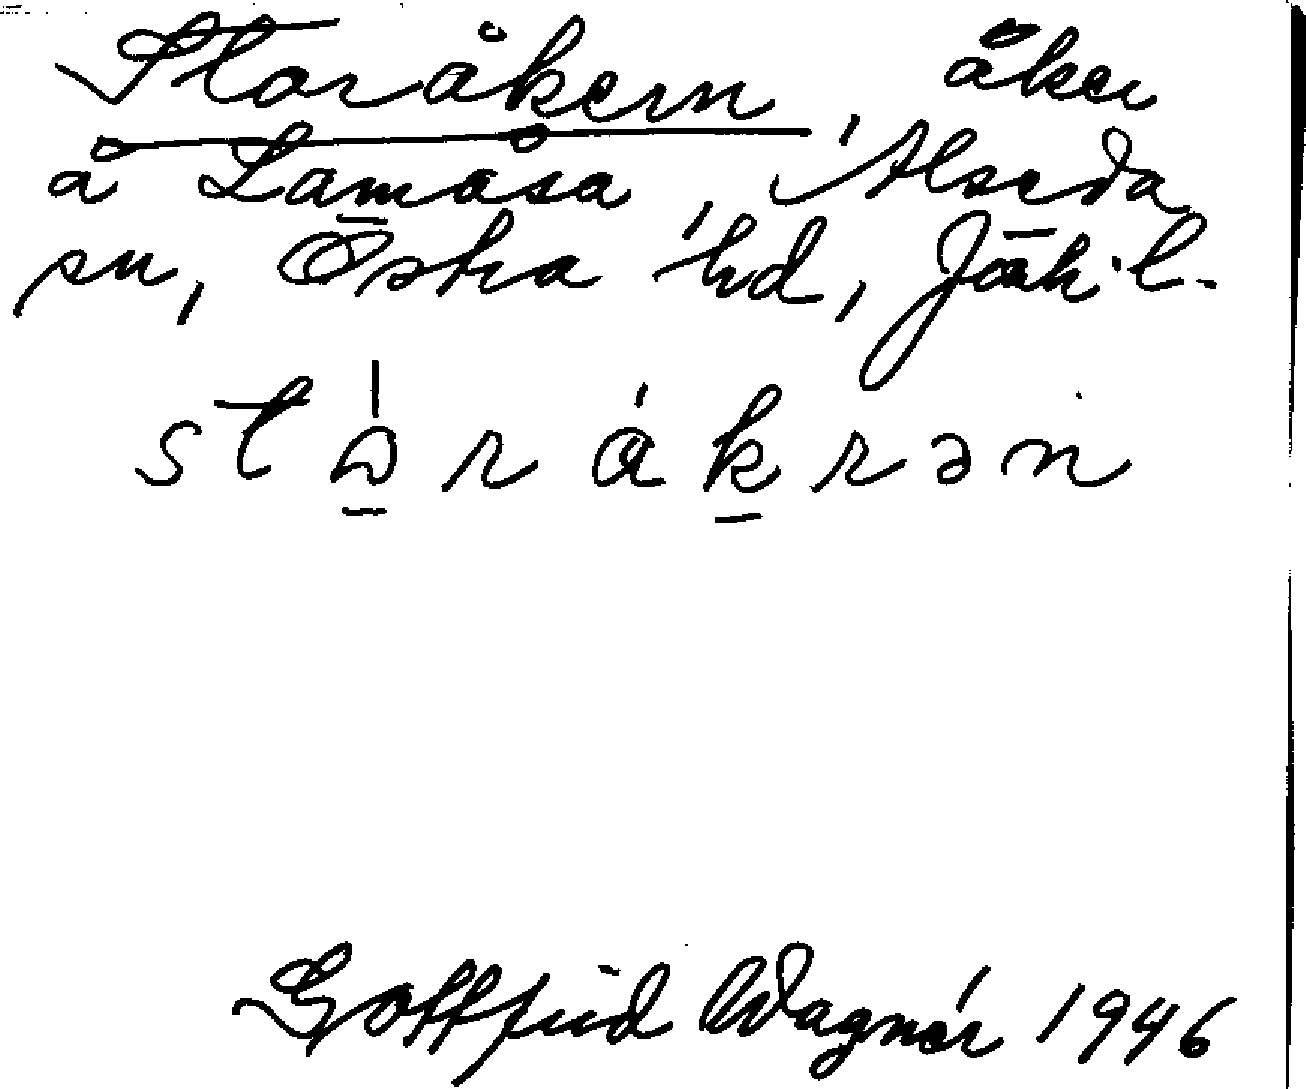 Storåkern, åker
å Lamåsa, Alseda
sn, Östra hd, Jönk. l.
stòrákrən
Gottfrid Wagnér 1946